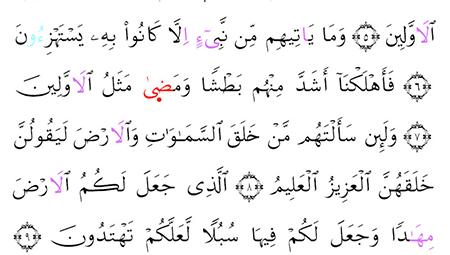 اَ۬لَاوَّلِينَ ۝٥ وَمَا يَاتِيهِم مِّن نَّبِيٓءٍ اِلَّا كَانُواْ بِهِۦ يَسْتَهْزِءُونَ
۝٦ فَأَهْلَكْنَآ أَشَدَّ مِنْهُم بَطْشًا وَمَضۭيٰ مَثَلُ اُ۬لَاوَّلِينَ
۝٧ وَلَئِن سَأَلْتَهُم مَّنْ خَلَقَ اَ۬لسَّمَٰوَٰتِ وَالَارْضَ لَيَقُولُنَّ
خَلَقَهُنَّ اَ۬لْعَزِيزُ اُ۬لْعَلِيمُ ۝٨ اُ۬لَّذِي جَعَلَ لَكُمُ اُ۬لَارْضَ
مِهَٰدًا وَجَعَلَ لَكُمْ فِيهَا سُبُلًا لَّعَلَّكُمْ تَهْتَدُونَ ۝٩